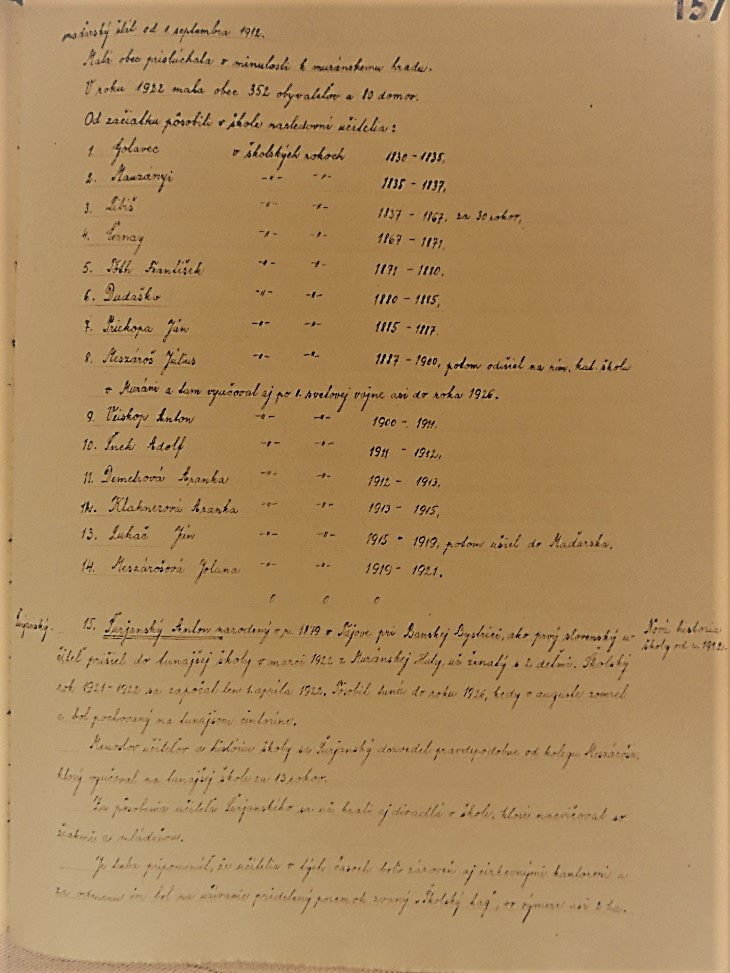 157
maďarský štát od 1. septembra 1912.
Malá obec prislúchala v minulosti k muránskemu hradu.
V roku 1922 mala obec 352 obyvateľov a 80 domov.
Od začiatku pôsobili v škole nasledovní učitelia:
1. Golavec v školských rokoch 1830 - 1835,
2. Mauzányi -"- -"- 1835 - 1837,
3. Libiš -"- -"- 1837 - 1867, za 30 rokov,
4. Černay -"- -"- 1867 - 1871,
5. Tóth František -"- -"- 1871 - 1880,
6. Dudaško -"- -"- 1880 - 1885,
7. Priekopa Ján -"- -"- 1885 - 1887.
8. Meszároš Július -"- -"- 1887 - 1900, potom odišiel na rím. kat. školu
v Muráni a tam vyučoval aj po 1. svetovej vojne asi do roka 1926.
9. Veiskop Anton -"- -"- 1900 - 1911,
10. Šnek Adolf -"- -"- 1911 - 1912,
11. Demetrová Aranka -"- -"- 1912 - 1913,
12. Klaknerová Aranka -"- -"- 1913 - 1915,
13. Lukáč Ján -"- -"- 1915 - 1919, potom ušiel do Maďarska.
14. Meszárošová Jolana -"- -"- 1919 - 1921.
o o o
Ťurjanský. 15. Ťurjanský Anton narodený v r. 1879 v Tajove pri Banskej Bystrici, ako prvý slovenský u- Nová historia
čiteľ prišiel do tunajšej školy v marci 1922 z Muránskej Huty, už ženatý s 2 deťmi. Školský školy od r. 1922.
rok 1921-1922 sa započal len 1. apríla 1922. Pôsobil tuná do roku 1926, kedy v auguste zomrel
a bol pochovaný na tunajšom cintoríne.
Menoslov učiteľov a históriu školy sa Ťurjanský dozvedel pravdepodobne od kolegu Meszároša,
ktorý vyučoval na tunajšej škole za 13 rokov.
Za pôsobenia učiteľa Ťurjanského sa už hrali aj divadlá v škole, ktoré nacvičoval so
žiakmi a mládežou.
Je treba pripomenúť, že učitelia v tých časoch boli zároveň aj cirkevnými kantormi a
za odmenu im bol na užívanie pridelený pozemok zvaný "Školský laz", vo výmere asi 2 ha.